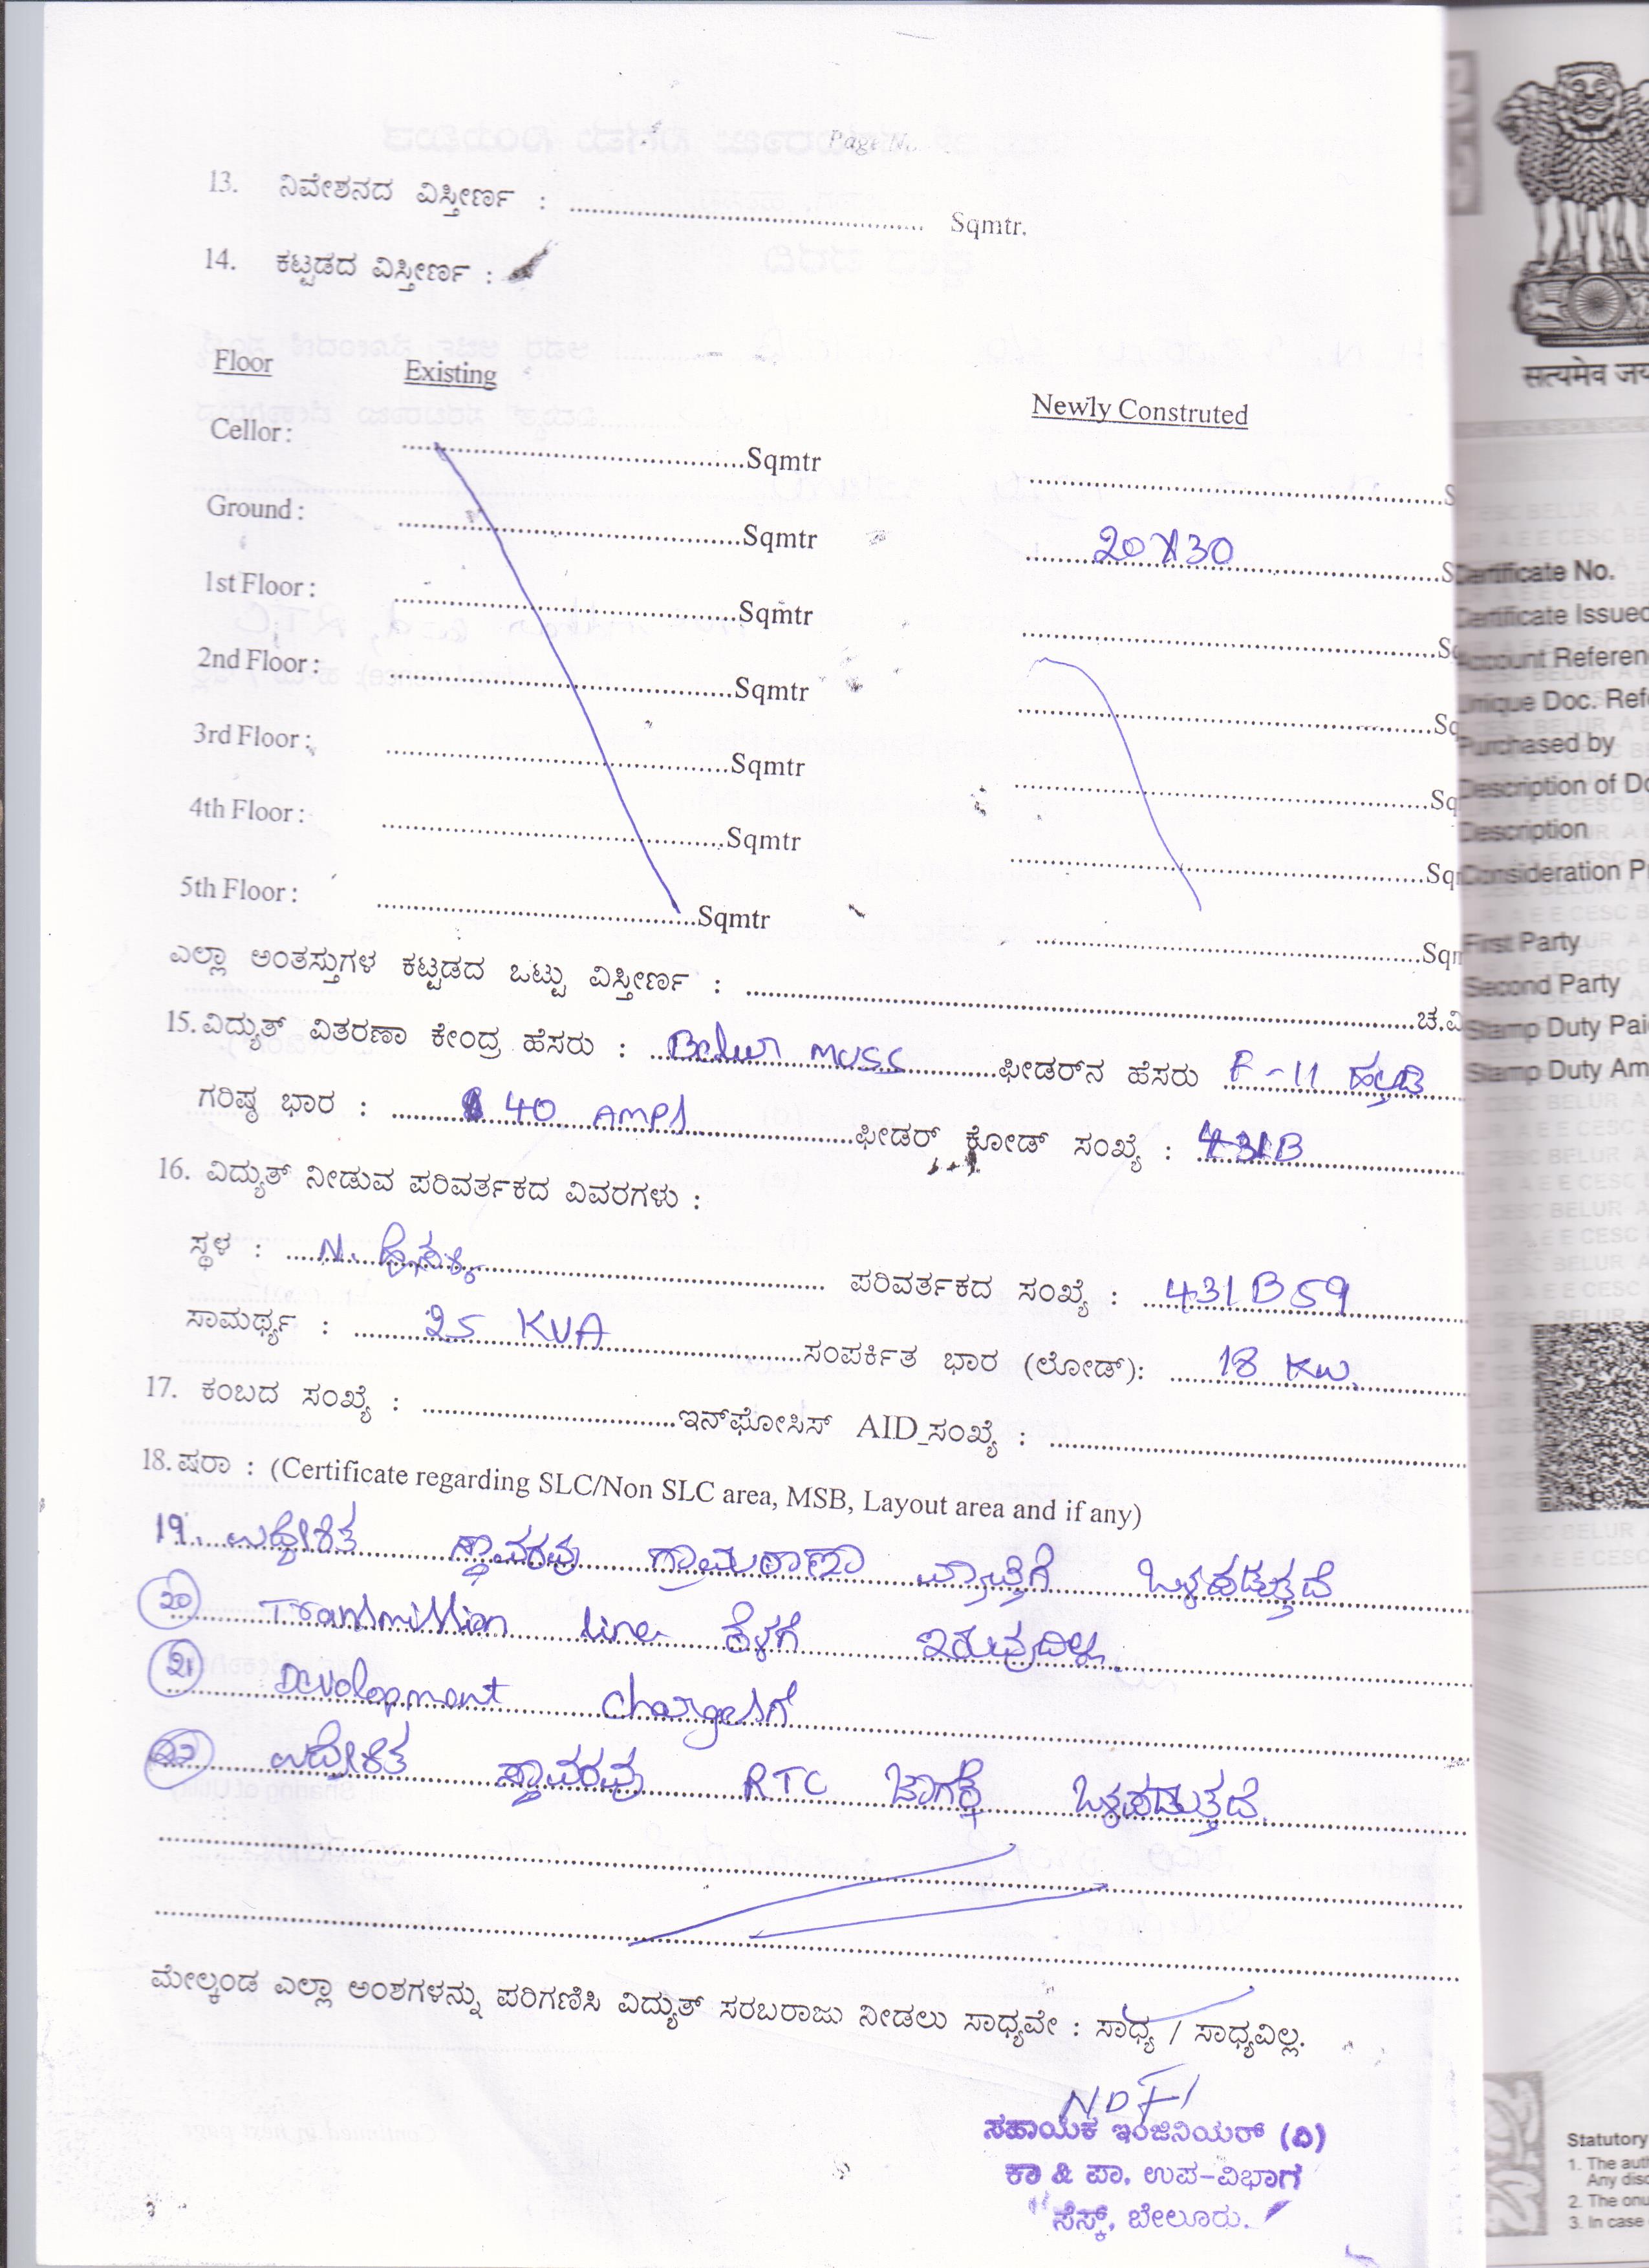 Page No.
13. ನಿವೇಶನದ ವಿಸ್ತೀರ್ಣ : .................... Sqmtr.
14. ಕಟ್ಟಡದ ವಿಸ್ತೀರ್ಣ :
Floor Existing Newly Construted
Cellor : ....................Sqmtr ....................S
Ground : ....................Sqmtr 20X30 ....................S
1st Floor : ....................Sqmtr ....................Sq
2nd Floor : ....................Sqmtr ....................Sq
3rd Floor : ....................Sqmtr ....................Sq
4th Floor : ....................Sqmtr ....................Sq
5th Floor : ....................Sqmtr ....................Sqm
ಎಲ್ಲಾ ಅಂತಸ್ತುಗಳ ಕಟ್ಟಡದ ಒಟ್ಟು ವಿಸ್ತೀರ್ಣ : ....................ಚ.ಮಿ
15. ವಿದ್ಯುತ್ ವಿತರಣಾ ಕೇಂದ್ರ ಹೆಸರು : Belur MUSS ಫೀಡರ್‌ನ ಹೆಸರು F-11
ಗರಿಷ್ಠ ಭಾರ : 40 AMPS ಫೀಡರ್ ಕೋಡ್ ಸಂಖ್ಯೆ : 431B
16. ವಿದ್ಯುತ್ ನೀಡುವ ಪರಿವರ್ತಕದ ವಿವರಗಳು :
ಸ್ಥಳ : N. ಪರಿವರ್ತಕದ ಸಂಖ್ಯೆ : 431B59
ಸಾಮರ್ಥ್ಯ : 25 KVA ಸಂಪರ್ಕಿತ ಭಾರ (ಲೋಡ್): 18 KW.
17. ಕಂಬದ ಸಂಖ್ಯೆ : ....................ಇನ್‌ಫೋಸಿಸ್ AID_ಸಂಖ್ಯೆ : ....................
18. ಷರಾ : (Certificate regarding SLC/Non SLC area, MSB, Layout area and if any)
19. ಉದ್ದೇಶಿತ ಸ್ಥಾವರವು ಗ್ರಾಮಠಾಣಾ ವ್ಯಾಪ್ತಿಗೆ ಒಳಪಡುತ್ತದೆ
20 Transmission line ಕೆಳಗೆ ಇರುವುದಿಲ್ಲ.
21 Development chargesಗೆ
22 ಉದ್ದೇಶಿತ ಸ್ಥಾವರವು RTC ಜಾಗಕ್ಕೆ ಒಳಪಡುತ್ತದೆ.
ಮೇಲ್ಕಂಡ ಎಲ್ಲಾ ಅಂಶಗಳನ್ನು ಪರಿಗಣಿಸಿ ವಿದ್ಯುತ್ ಸರಬರಾಜು ನೀಡಲು ಸಾಧ್ಯವೇ : ಸಾಧ್ಯ / ಸಾಧ್ಯವಿಲ್ಲ.
ಸಹಾಯಕ ಇಂಜಿನಿಯರ್ (ವಿ)
ಕಾ & ಪಾ. ಉಪ-ವಿಭಾಗ
ಸೆಸ್ಕ್, ಬೇಲೂರು.
सत्यमेव जय
Certificate No.
Certificate Issued
Account Referen
Unique Doc. Refe
Purchased by
Description of Do
Description
Consideration Pr
First Party
Second Party
Stamp Duty Paid
Stamp Duty Am
Statutory
1. The auth
Any disc
2. The onu
3. In case